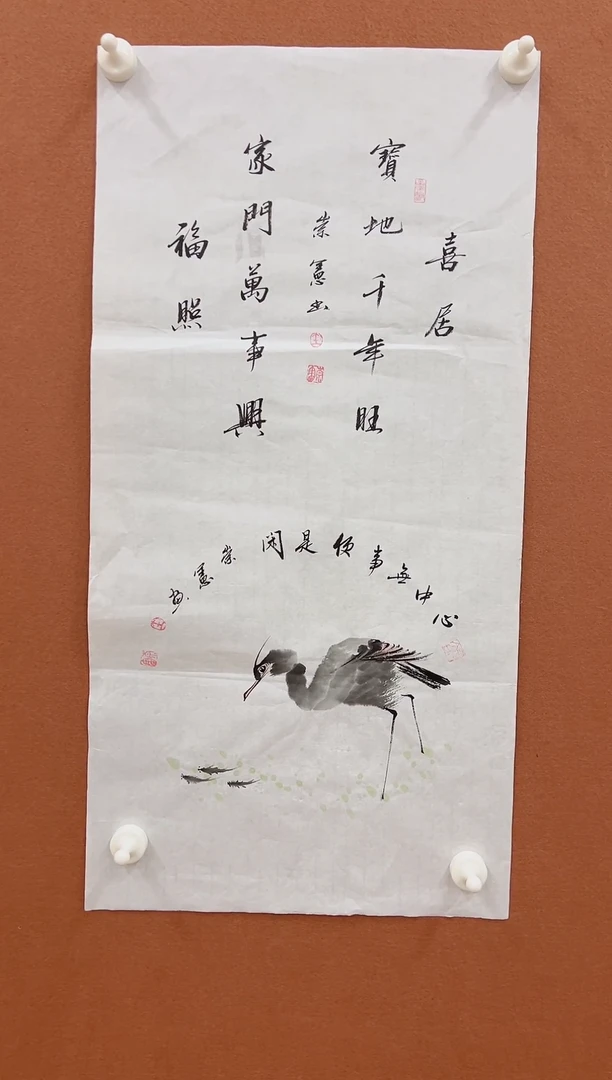 喜居
寶地千年旺
崇憲書
家門萬事興
福照
心中無事便是閑
崇憲畫